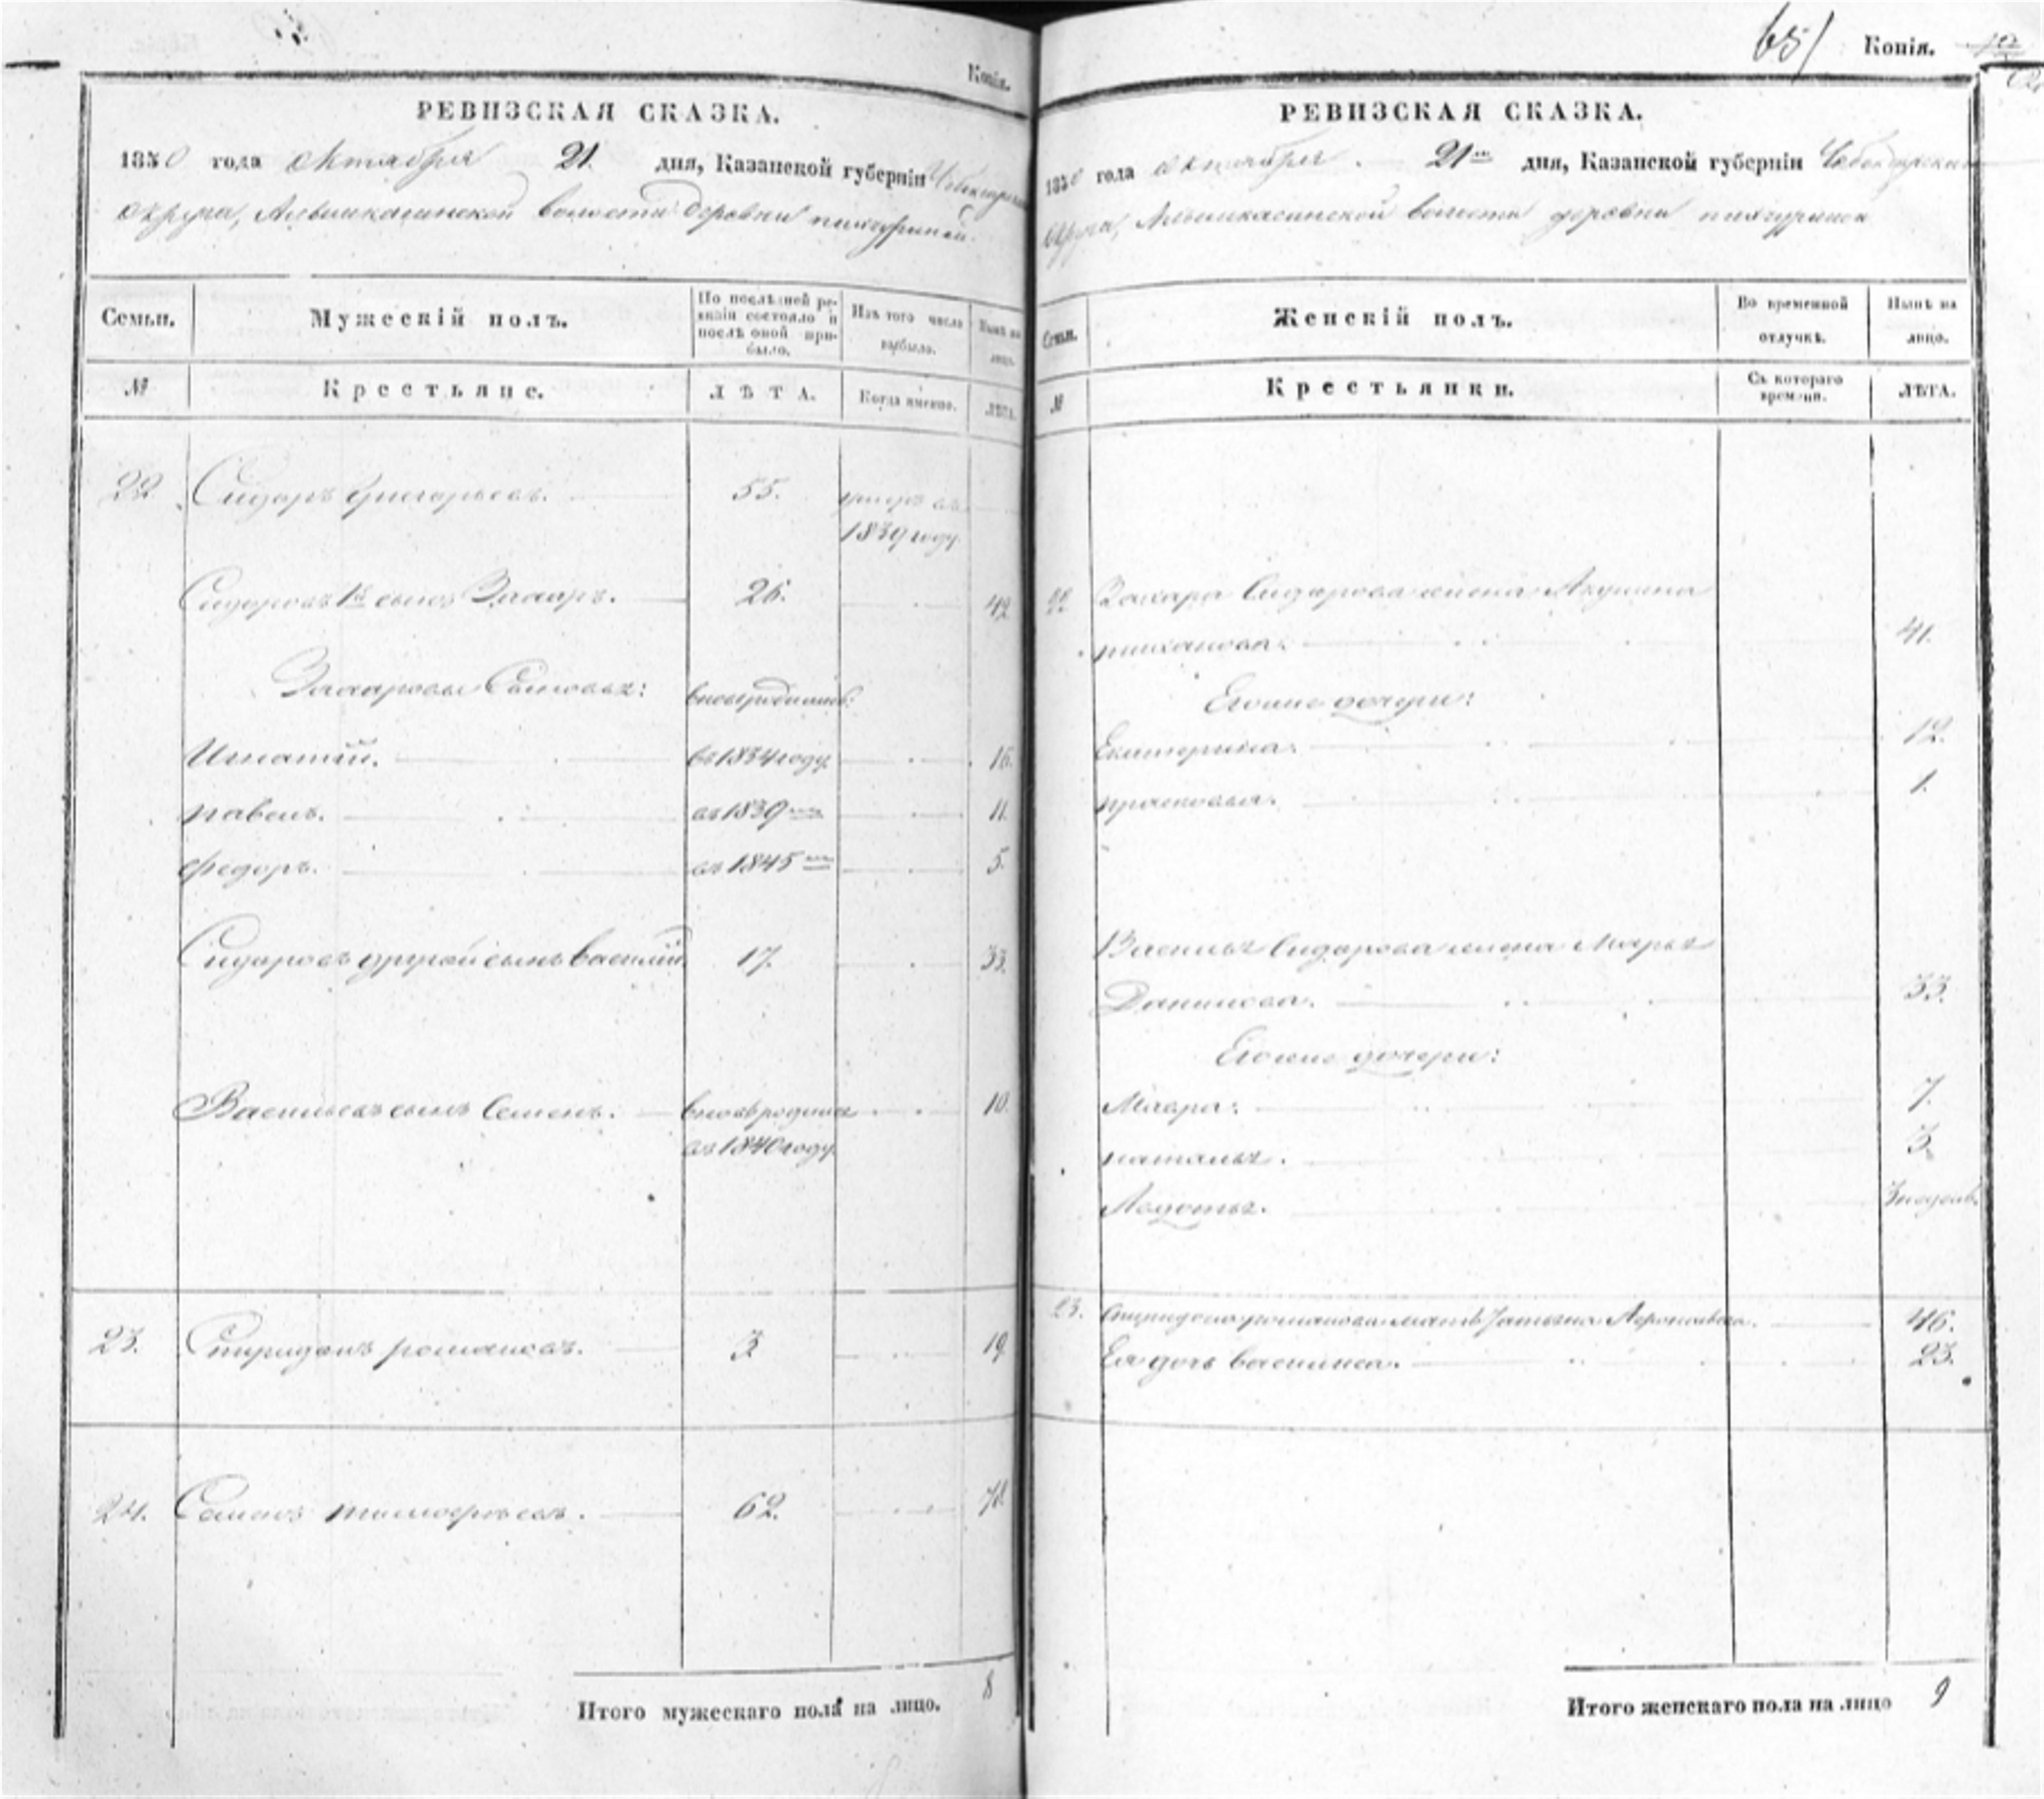 Копія.
РЕВИЗСКАЯ СКАЗКА.
1850 года октября 21. дня, Казанской губерніи Чебоксарскаго
округа, волости деревни
Семьи.
Мужескій полъ.
По послѣдней ре-
визіи состояло и
послѣ оной при-
было.
Изъ того числа
выбыло.
Нынѣ на
лицо.
№
Крестьяне.
ЛѢТА.
Когда именно.
ЛѢТА.
22 Сидоръ Григорьевъ. 55. умеръ въ
1839 году.
Сидоровъ 1й сынъ Захаръ. 26. 42.
Захаровы Сыновья: вновь рожденные:
Игнатій. въ 1834 году. 16.
павелъ. въ 1839 11.
федоръ. въ 1845 5.
Сидоровъ другой сынъ Василій 17. 33.
Васильевъ сынъ Семенъ. вновь родился 10.
въ 1840 году.
23. Спиридонъ романовъ. 3. 19.
24. Семенъ тимофѣевъ. 62. 78.
Итого мужескаго пола на лицо. 8
651 Копія.
РЕВИЗСКАЯ СКАЗКА.
1850 года октября 21 дня, Казанской губерніи Чебоксарскаго
округа, волости деревни
Семьи.
Женскій полъ.
Во временной
отлучкѣ.
Нынѣ на
лицо.
№
Крестьянки.
Съ котораго
времени.
ЛѢТА.
22 Захара Сидорова жена Акулина
41.
Его же дочери:
Екатерина. 12.
прасковья. 1.
Василья Сидорова жена Марья
Данилова. 33.
Его же дочери:
Мавра. 7.
наталья. 3.
Федотья. 3 недѣль.
23. Спиридона романова мать Татьяна 46.
Ея дочь василиса. 23.
Итого женскаго пола на лицо 9